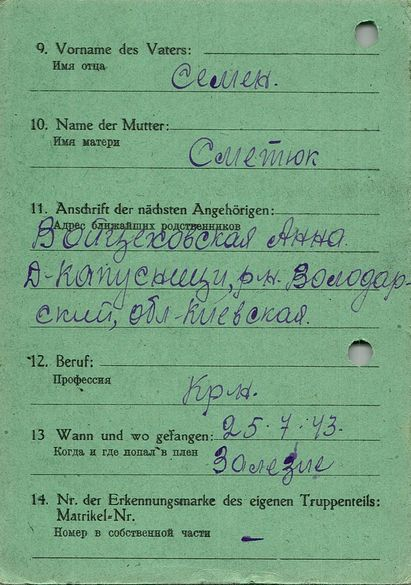 9. Vorname des Vaters:
Имя отца
Семен.
10. Name der Mutter:
Имя матери
Сметюк
11. Anschrift der nächsten Angehörigen:
Адрес ближайших родственников
Войцеховская Анна.
Д-Капусницы, р.н. Володар-
ский, обл-Киевская.
12. Beruf:
Профессия
Крн.
13 Wann und wo gefangen: 25.7.43.
Когда и где попал в плен
Залезие
14. Nr. der Erkennungsmarke des eigenen Truppenteils:
Matrikel-Nr.
Номер в собственной части
—